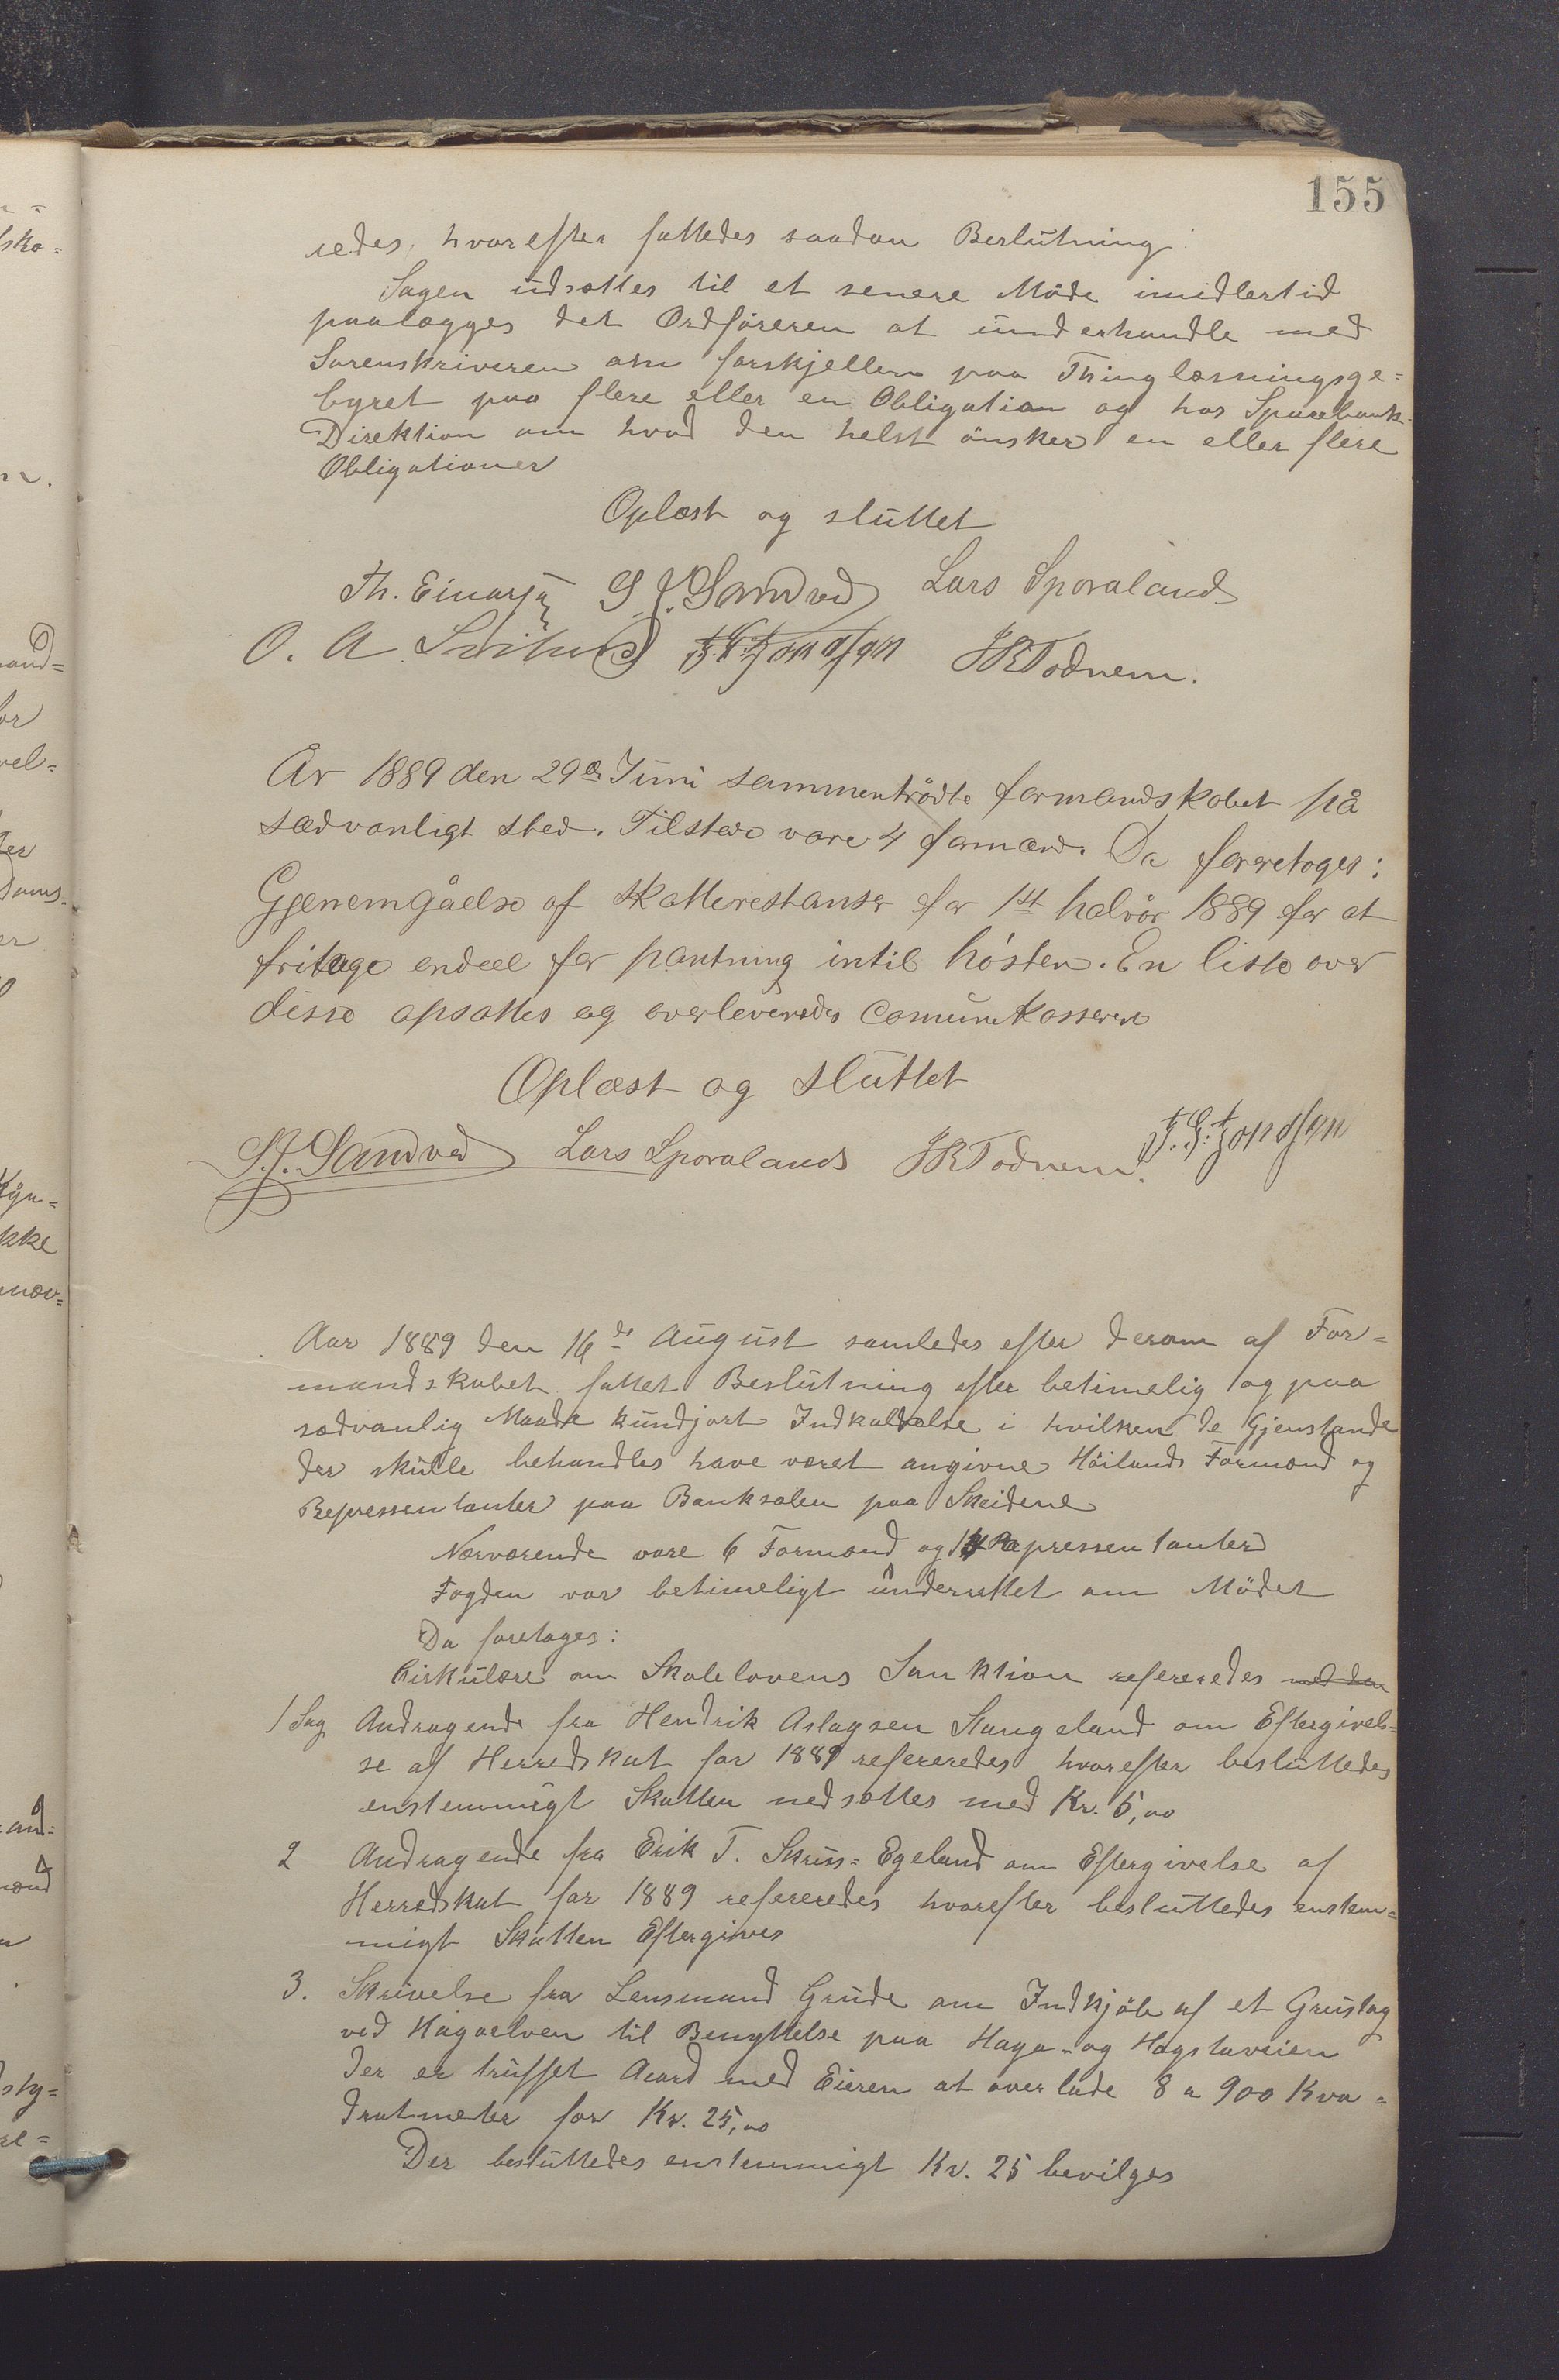 155
redes, hvorefter fattedes saadan Beslutning:
Sagen udsættes til et senere Møde imidlertid
paalægges det Ordføreren at underhandle med
Sorenskriveren om forskjellen paa Thinglæsningsge=
byret paa flere eller en Obligation og hos Sparebank-
Direktion om hvad den helst ønsker en eller flere
Obligationer
Oplæst og sluttet
Th. Einarsen S. J. Sandved Lars Sporaland
O. A. JRTodnem.
År 1889 den 29de Juni sammentrådte formandskabet på
sædvanligt sted. Tilstede vare 4 formænd. Da foretoges:
Gjenemgåelse af Skatterestanser for 1st halvår 1889 for at
fritage endeel for pantning intil hösten. En liste over
disse opsattes og overleveredes Comunekasseren
Oplæst og sluttet
S.J. Sandved Lars Sporaland JRTodnem.
Aar 1889 den 16de August samledes efter derom af For=
mandskabet fattet Beslutning efter betimelig og paa
sædvanlig Maade kundgjort Indkaldelse i hvilken de Gjenstande
der skulle behandles have været angivne Höilands Formænd og
Repressentanter paa Banksalen paa Skeidene
Nærværende vare 6 Formænd og 14 Repressentanter
Fogden var betimeligt underrettet om Mödet
Da foretoges:
Cirkulære om Skolelovens Sanktion refereredes med den
1 Sag Andragende fra Hendrik Aslagsen Stangeland om Eftergivel=
se af Herredskat for 1889 refereredes hvorefter besluttedes
enstemmigt Skatten nedsættes med Kr. 5,00
2 Andragende fra Erik T. Skruss=Egeland om Eftergivelse af
Herredskat for 1889 refereredes hvorefter besluttedes enstem=
migt Skatten Eftergives
3. Skrivelse fra Lensmand Grude om Indkjöb af et Grustag
ved Hagaelven til Benyttelse paa Haga- og Hogstaveien
Der er truffet Acord med Eieren at overlade 8 a 900 Kva=
dratmeter for Kr. 25,00
Der besluttedes enstemmigt Kr. 25 bevilges